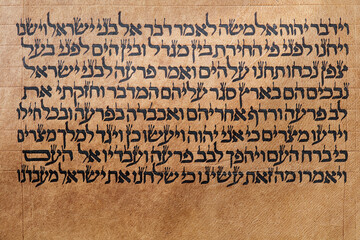 וידבר יהוה אל משה לאמר דבר אל בני ישראל וישבו
ויחנו לפני פי החירת בין מגדל ובין הים לפני בעל
צפן נכחו תחנו על הים ואמר פרעה לבני ישראל
נבכים הם בארץ סגר עליהם המדבר וחזקתי את
לב פרעה ורדף אחריהם ואכבדה בפרעה ובכל חילו
וידעו מצרים כי אני יהוה ויעשו כן ויגד למלך מצרים
כי ברח העם ויהפך לבב פרעה ועבדיו אל העם
ויאמרו מה זאת עשינו כי שלחנו את ישראל מעבדנו